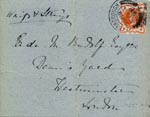 Waifs & Strays
E. de M. Rudolf Esqre
Dean's Yard
Westminster
London